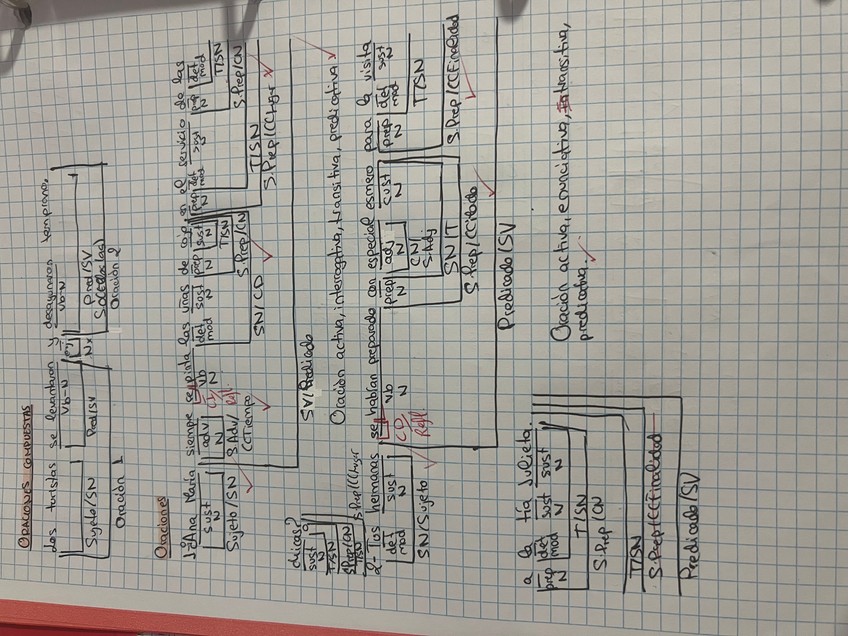 ORACIONES COMPUESTAS
Los turistas se levantaron y desayunaron temprano.
Vb-N conj Vb-N
Nx
Sujeto/SN Pred/SV Pred/SV
Oración 1 Oración 2
Oraciones
1-¿Ana María siempre se pinta las uñas de rojo, en el servicio de las
sust adv vb det sust prep sust prep det sust prep det
N N N mod N N N N mod N N mod
CI/ Refl. T/SN T/SN
Sujeto/SN S.Adv/ S.Prep/CN S.Prep/CN
CCTiempo SN/CD T/SN
S.Prep/CCLugar
SV/Predicado
chicas?
sust
N
T/SN
S.Prep/CN
T/SN
S.Prep/CCLugar
Oración activa, interrogativa, transitiva, predicativa
2- Tus hermanas se habían preparado con especial esmero para la visita
det sust vb prep adj sust prep det sust
mod N N N N N N mod N
CD/ Refl. CN/ S.Adj T/SN
SN/Sujeto SN/T S.Prep/CCFinalidad
S.Prep/CCModo
Predicado/SV
a la tía Julieta.
prep det sust sust
N mod N N
T/SN
S.Prep/CN
T/SN
S.Prep/CCFinalidad
Predicado/SV
Oración activa, enunciativa, transitiva,
predicativa.